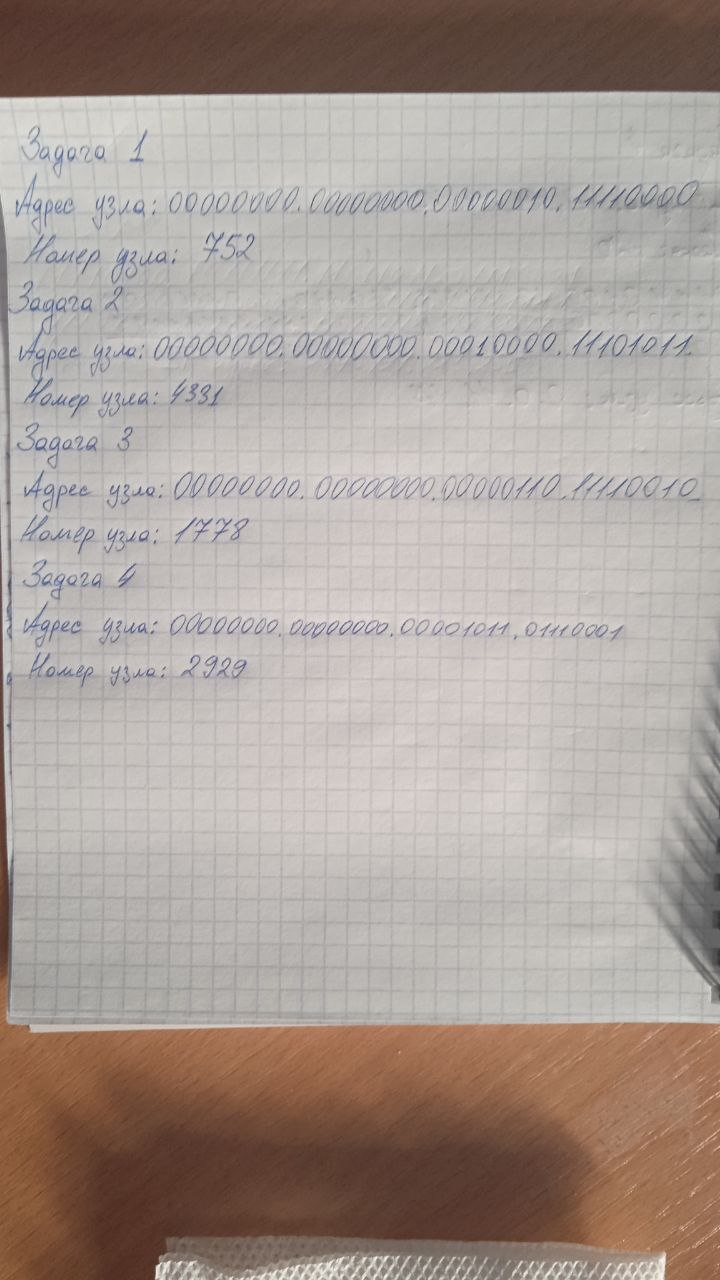 Задача 1
Адрес узла: 00000000.00000000.00000010.11110000
Номер узла: 752
Задача 2
Адрес узла: 00000000.00000000.00010000.11101011.
Номер узла: 4331
Задача 3
Адрес узла: 00000000.00000000.00000110.11110010
Номер узла: 1778
Задача 4
Адрес узла: 00000000.00000000.00001011.01110001
Номер узла: 2929